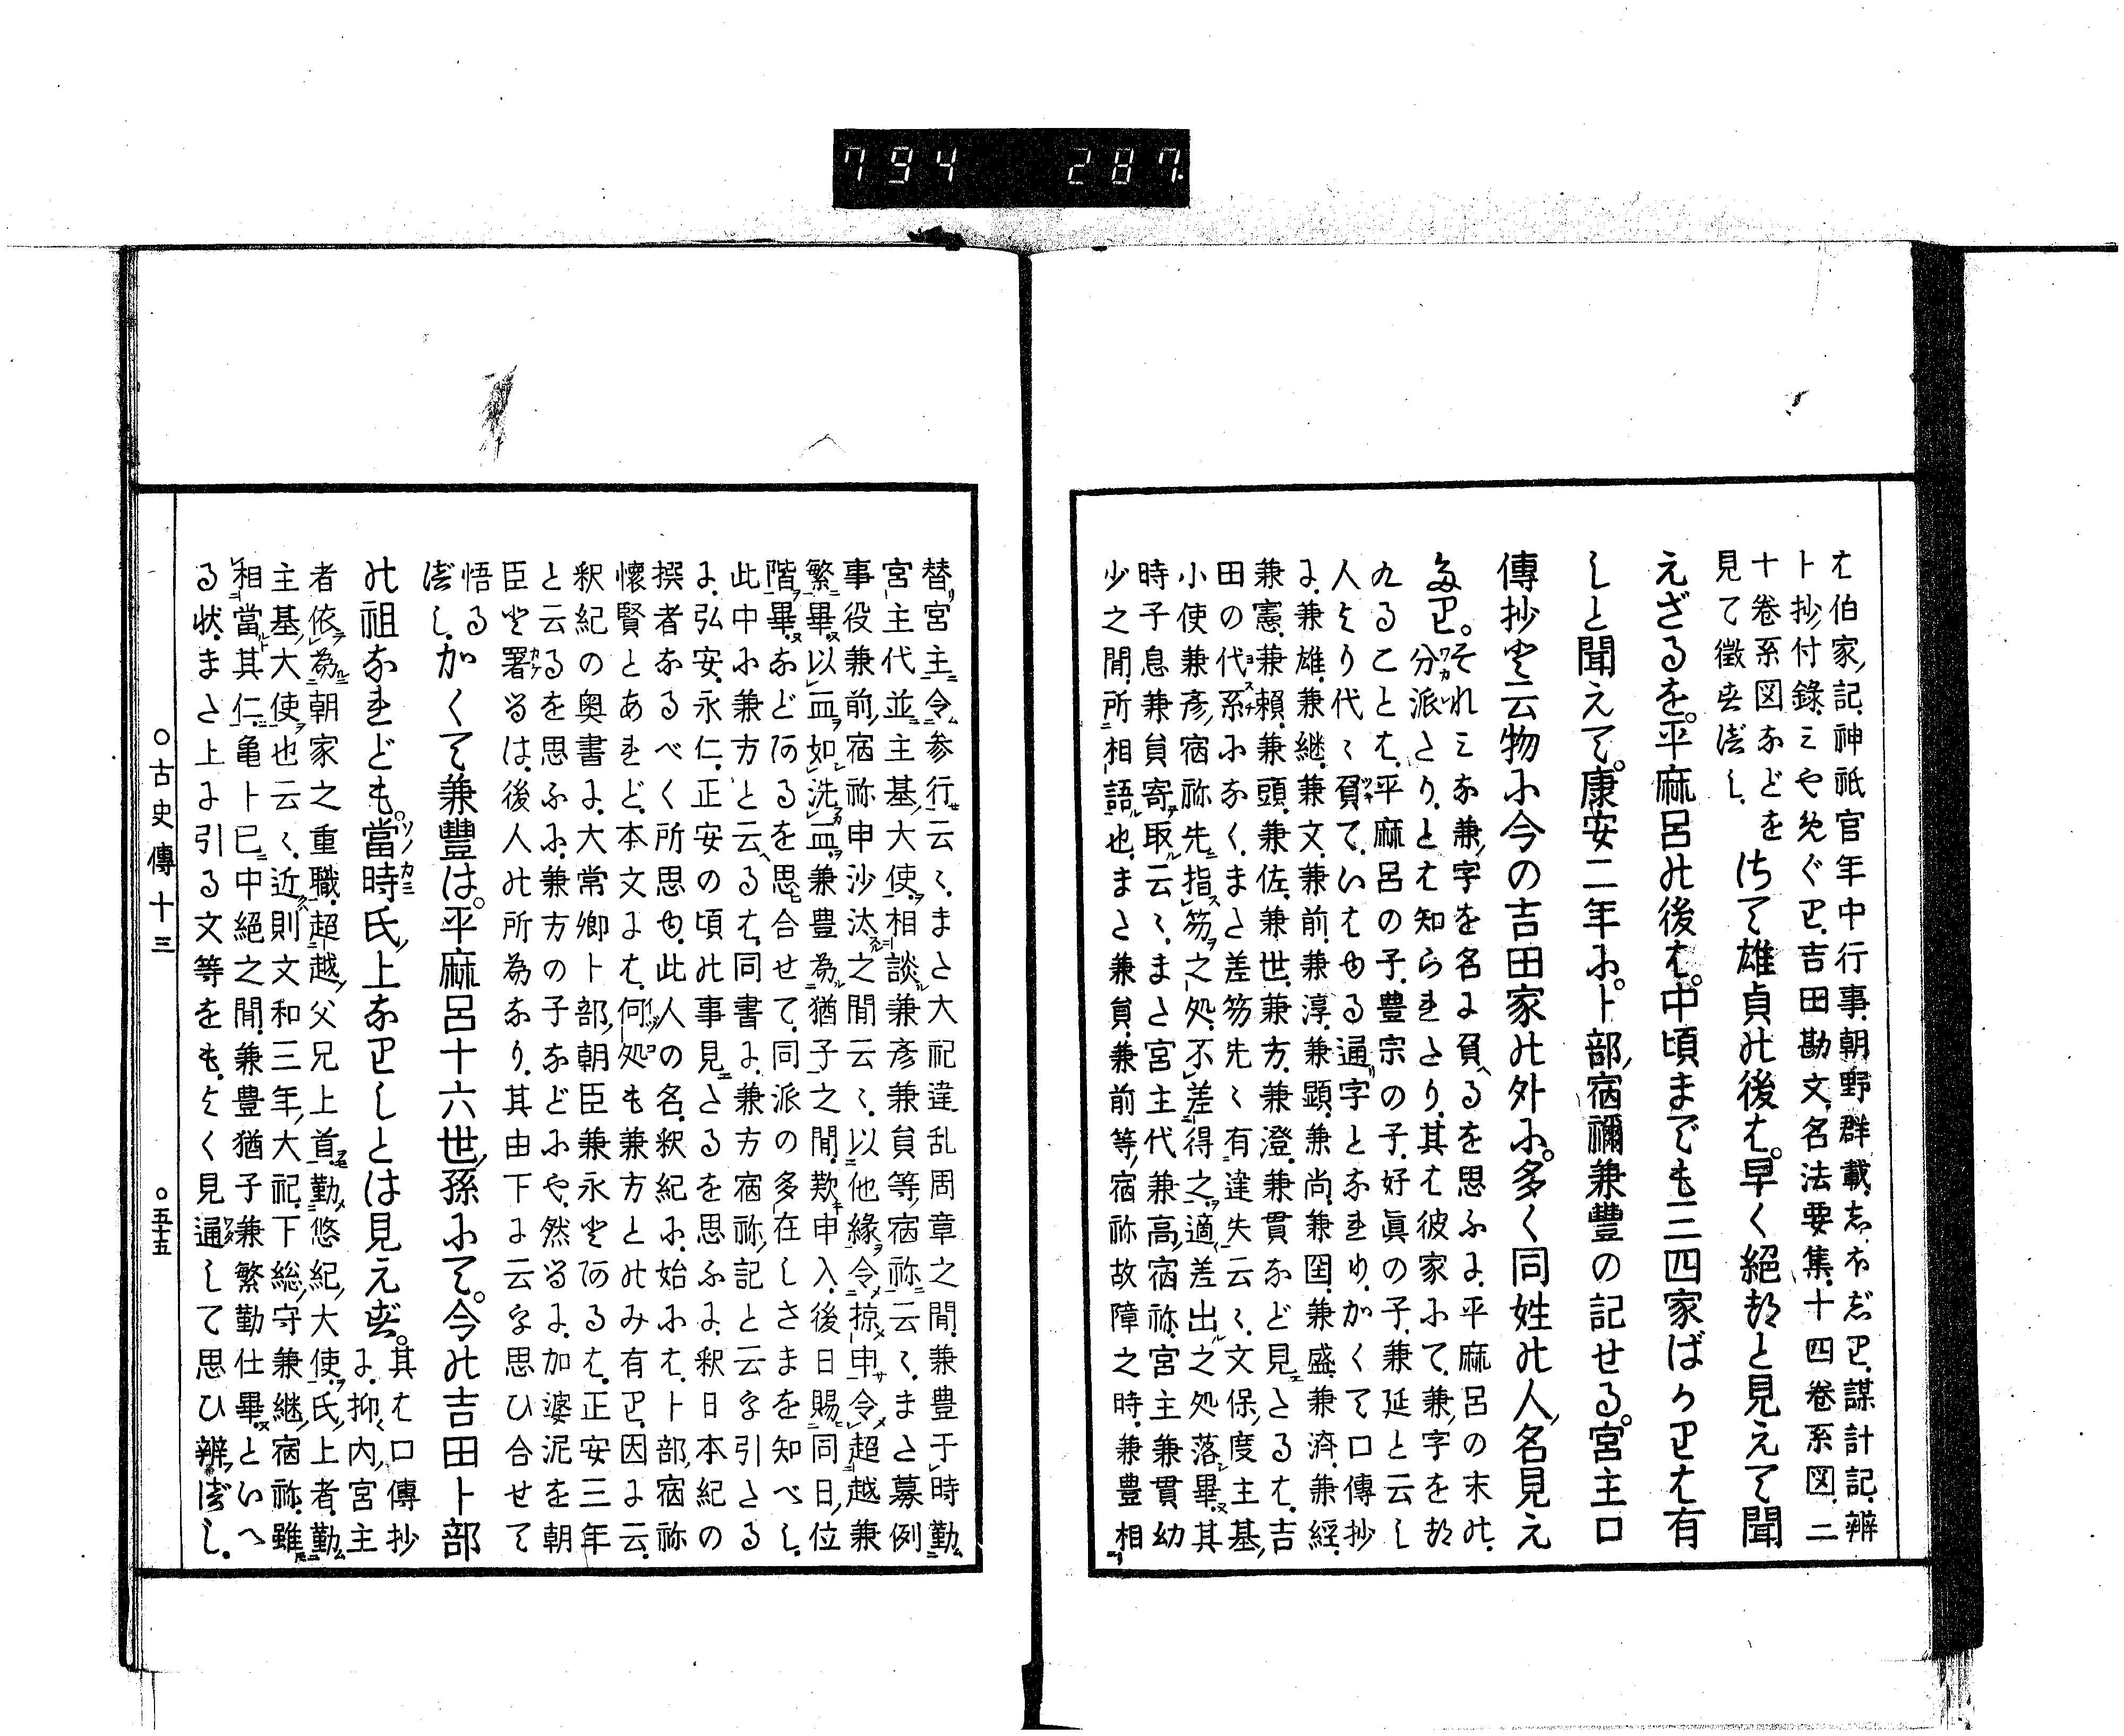 794 287.
は伯家記神祇官年中行事朝野群載志ホ志り謀計記辨
卜抄付錄ミやゐぐり吉田勘文名法要集十四卷系図二
十卷系図などを
見て徴さべし
はて雄貞の後は早く絕たと見えて聞
えざるを平麻呂の後は中頃までも三四家ばかりは有
しと聞えて康安二年に卜部宿禰兼豐の記せる宮主口
傳抄と云物に今の吉田家の外に多く同姓の人名見え
たり
それみな兼字を名に負るを思ふに平麻呂の末の
分派たりとは知られたり其は彼家にて兼字をた
れることは平麻呂の子豊宗の子好眞の子兼延と云し
人より代々負ていはゆる通字となれりかくて口傳抄
に兼雄兼継兼文兼前兼淳兼顕兼尚兼国兼盛兼濟兼經
兼憲兼頼兼頭兼佐兼世兼方兼澄兼貫など見えたるは吉
田の代系になくまた差笏先々有違失云々文保度主基
小使兼彦宿祢先指笏之処不差得之適差出之処落畢其
時子息兼貟寄取云々また宮主代兼高宿祢宮主兼貫幼
少之間所相語也また兼貟兼前等宿祢故障之時兼豊相
替宮主令参行云々また大祀違乱周章之間兼豊于時勤
宮主代並主基大使相談兼彦兼貟等宿祢云々また募例
事役兼前宿祢申沙汰之間云々以他緣令掠申令超越兼
繁畢以血如洗血兼豊為猶子之間歎申入後日賜同日位
階畢などあるを思合せて同派の多在しさまを知べし
此中に兼方と云るは同書に兼方宿祢記と云を引たる
に弘安永仁正安の頃の事見たるを思ふに釈日本紀の
撰者なるべく所思也此人の名釈紀に始には卜部宿祢
懷賢とあれど本文には何処も兼方とのみ有り因に云
釈紀の奥書に大常卿卜部朝臣兼永とあるは正安三年
と云るを思ふに兼方の子などにや然るに加婆泥を朝
臣と署るは後人の所為なり其由下に云を思ひ合せて
悟る
べし
かくて兼豐は平麻呂十六世孫にて今の吉田卜部
の祖なれども當時氏上なりしとは見えず
其は口傳抄
に抑内宮主
者依為朝家之重職超越父兄上首勤悠紀大使氏上者勤
主基大使也云々近則文和三年大祀下総守兼継宿祢雖
相當其仁亀卜已中絕之間兼豊猶子兼繁勤仕畢といへ
る状また上に引る文等をもよく見通して思ひ辨べし
○古史傳十三
○五十五